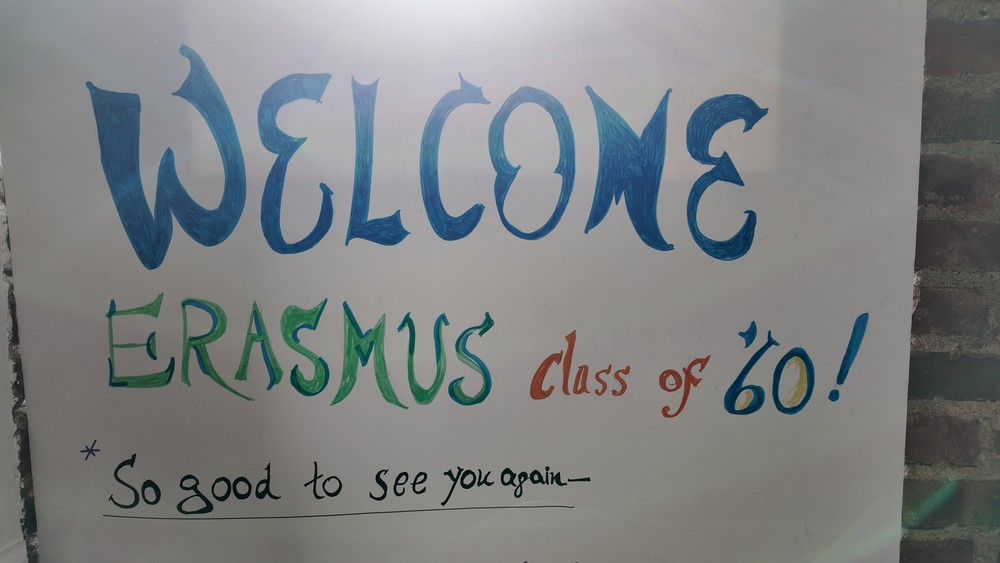 WELCOME
ERASMUS class of '60!
* So good to see you again—